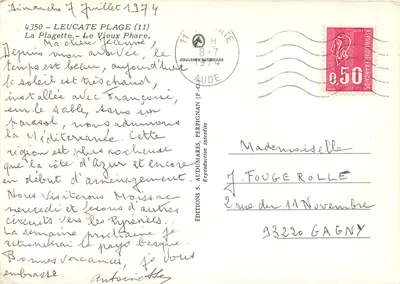 Dimanche 7 Juillet 1974
4350 - LEUCATE PLAGE (11)
La Plagette - Le Vieux Phare.
Ma chère Jeanne,
Depuis mon arrivée, le
temps est beau, aujourd'hui
le soleil est très chaud,
installée avec Françoise,
sur le sable, sous un
parasol, nous admirons
la Méditerranée. Cette
région est plus rocheuse
que la côte d'Azur et encore
en début d'aménagement.
Nous visiterons Moissac
mercredi et ferons d'autres
circuits vers les Pyrénées.
La semaine prochaine je
retrouverai le pays basque.
Bonnes vacances, je vous
embrasse.
Antoinette
COULEURS NATURELLES
ÉDITIONS S. AUDUMARES, PERPIGNAN (P.-O.)
Reproduction interdite
11
8-7
1974
AUDE
0,50
Mademoiselle
J. FOUGEROLLE
2 rue du 11 Novembre
93220 GAGNY